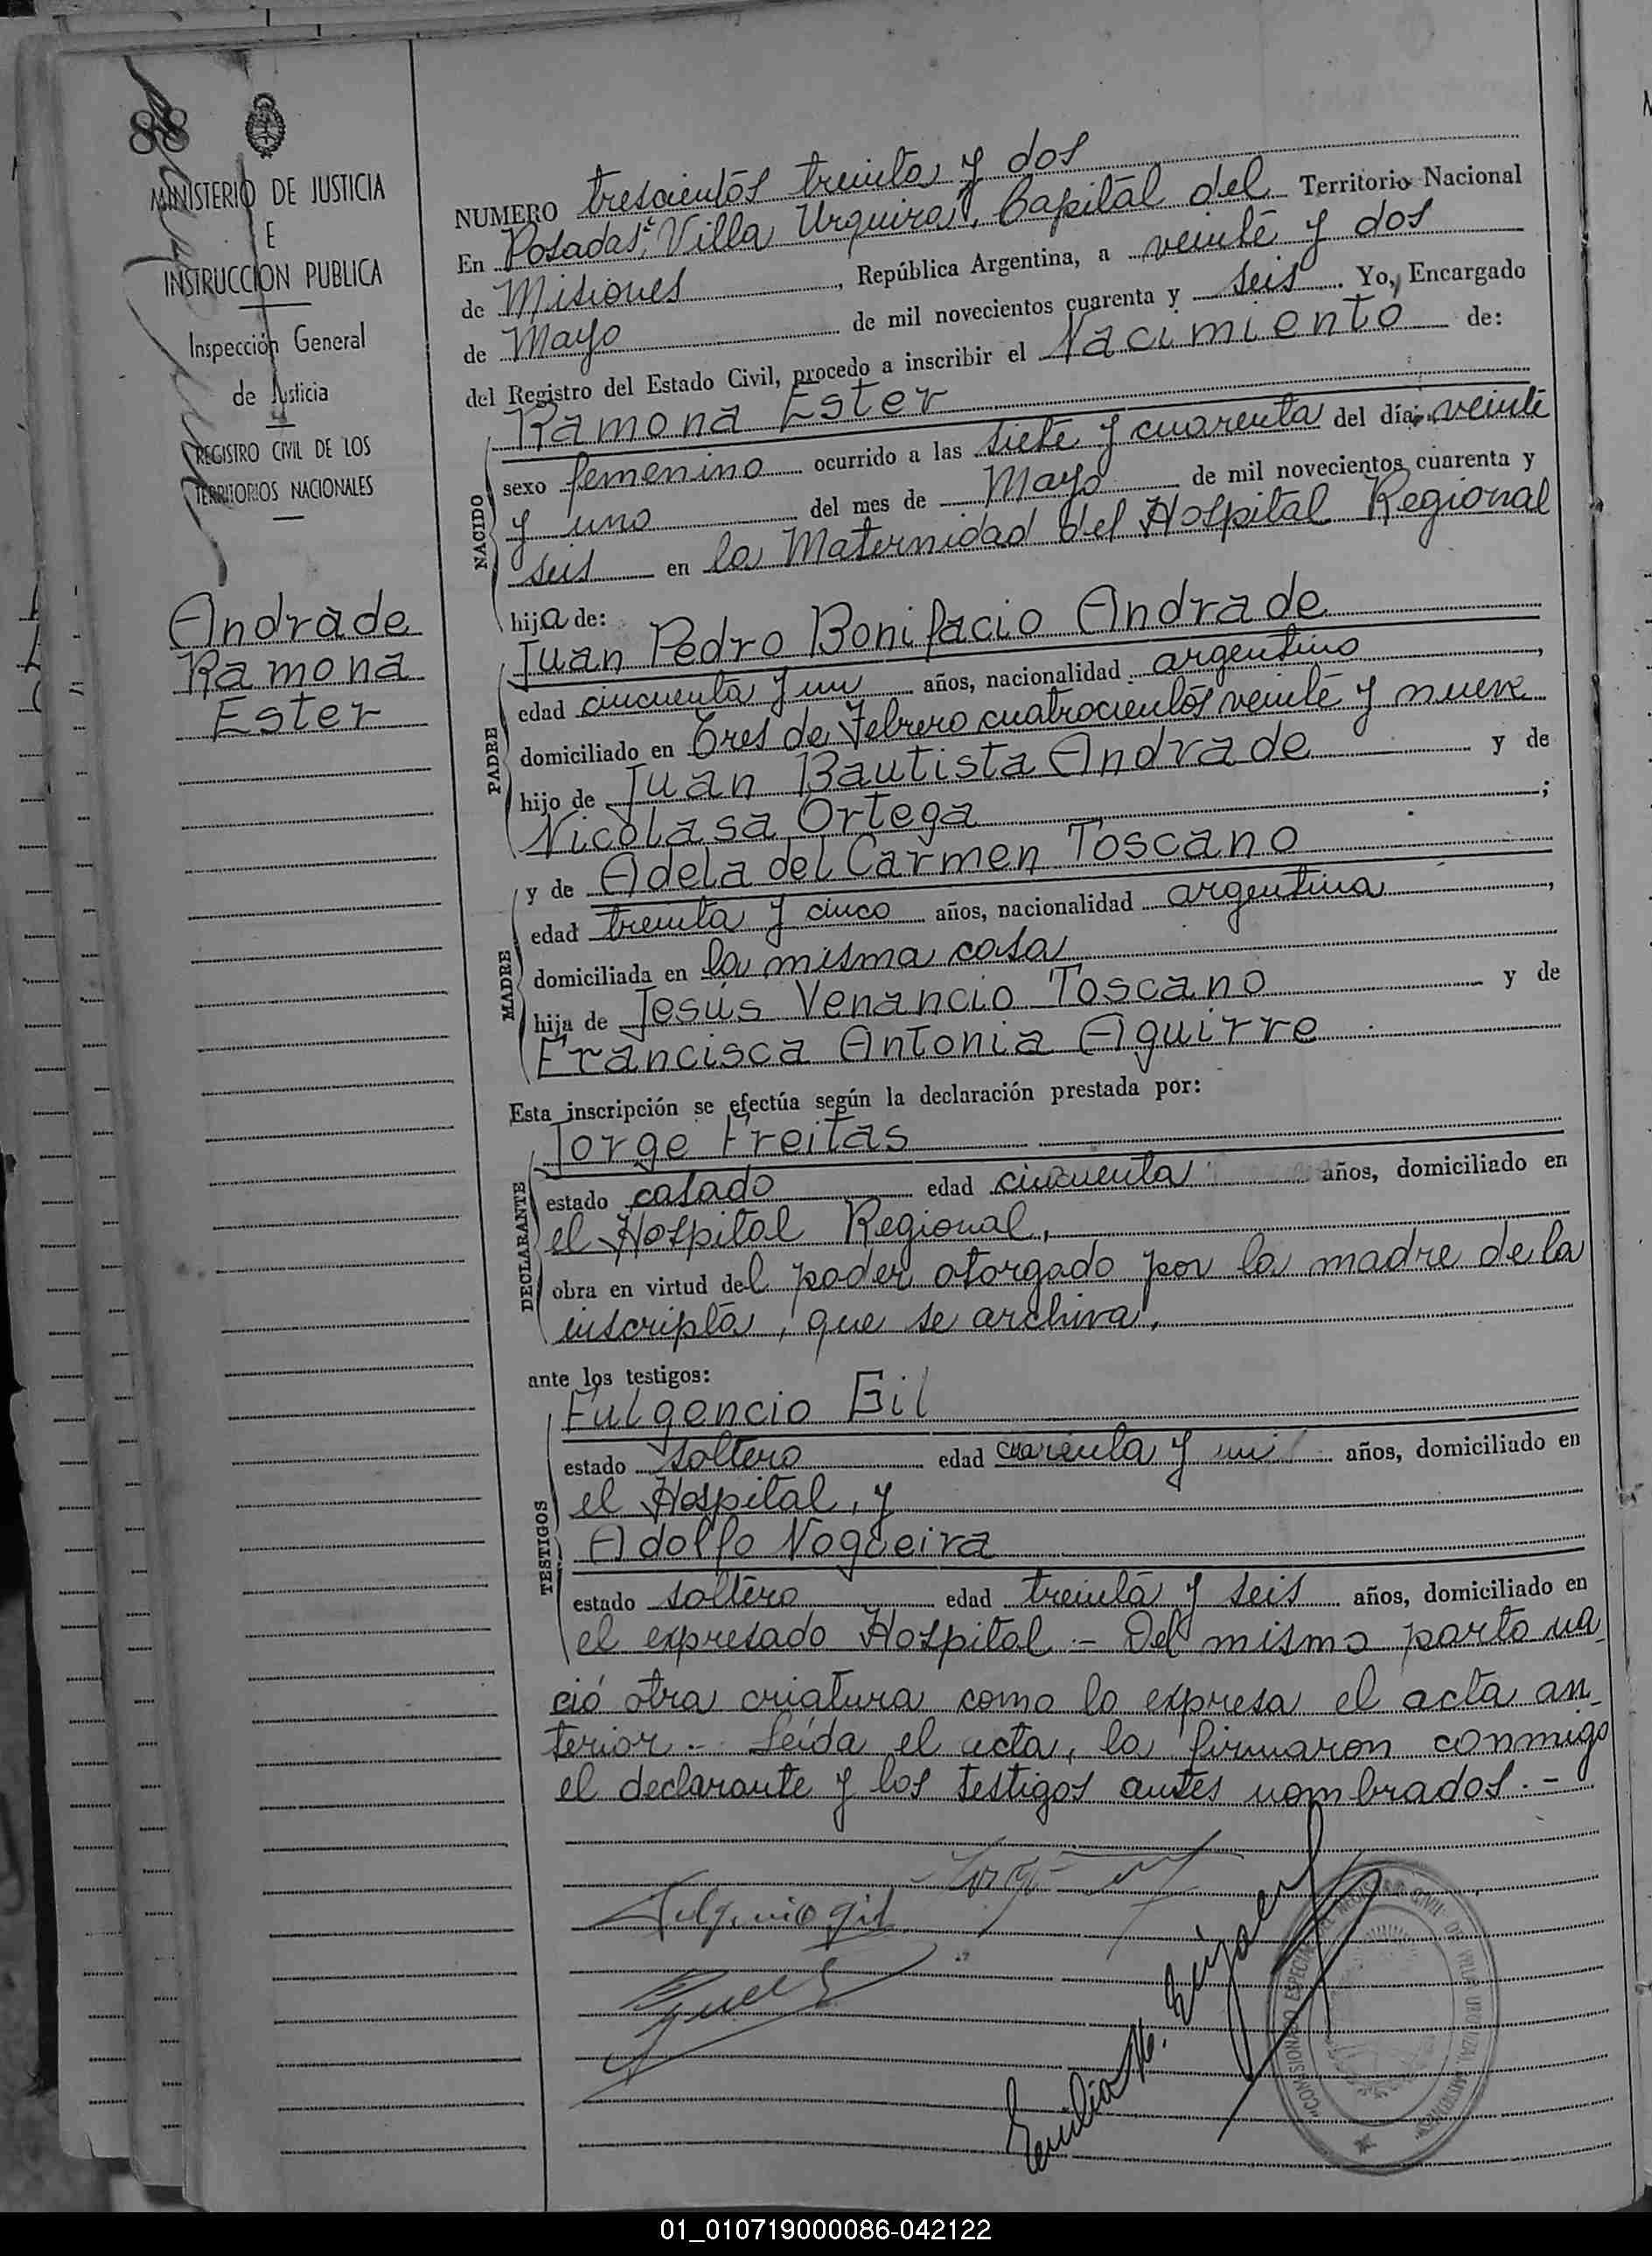 88
MINISTERIO DE JUSTICIA
E
INSTRUCCION PUBLICA
Inspección General
de Justicia
REGISTRO CIVIL DE LOS
TERRITORIOS NACIONALES
Andrade
Ramona
Ester
NUMERO trescientos treinta y dos
En Posadas, "Villa Urquiza", Capital del Territorio Nacional
de Misiones, República Argentina, a veinte y dos
de Mayo de mil novecientos cuarenta y seis. Yo, Encargado
del Registro del Estado Civil, procedo a inscribir el Nacimiento de:
NACIDO
Ramona Ester
sexo femenino ocurrido a las siete y cuarenta del día veinte
y uno del mes de Mayo de mil novecientos cuarenta y
seis en la Maternidad del Hospital Regional
hija de:
PADRE
Juan Pedro Bonifacio Andrade
edad cincuenta y un años, nacionalidad argentino,
domiciliado en Tres de Febrero cuatrocientos veinte y nueve
hijo de Juan Bautista Andrade y de
Nicolasa Ortega;
MADRE
y de Adela del Carmen Toscano
edad treinta y cinco años, nacionalidad argentina,
domiciliada en la misma casa
hija de Jesús Venancio Toscano y de
Francisca Antonia Aguirre
Esta inscripción se efectúa según la declaración prestada por:
DECLARANTE
Jorge Freitas
estado casado edad cincuenta años, domiciliado en
el Hospital Regional,
obra en virtud del poder otorgado por la madre de la
inscripta, que se archiva.
ante los testigos:
TESTIGOS
Fulgencio Gil
estado soltero edad cuarenta y un años, domiciliado en
el Hospital, y
Adolfo Nogueira
estado soltero edad treinta y seis años, domiciliado en
el expresado Hospital.- Del mismo parto na_
ció otra criatura como lo expresa el acta an_
terior.- Leída el acta, la firmaron conmigo
el declarante y los testigos antes nombrados.-
Fulgencio Gil
Emilia
COMISIONADO ESPECIAL REGISTRO CIVIL DE VILLA URQUIZA
01_010719000086-042122